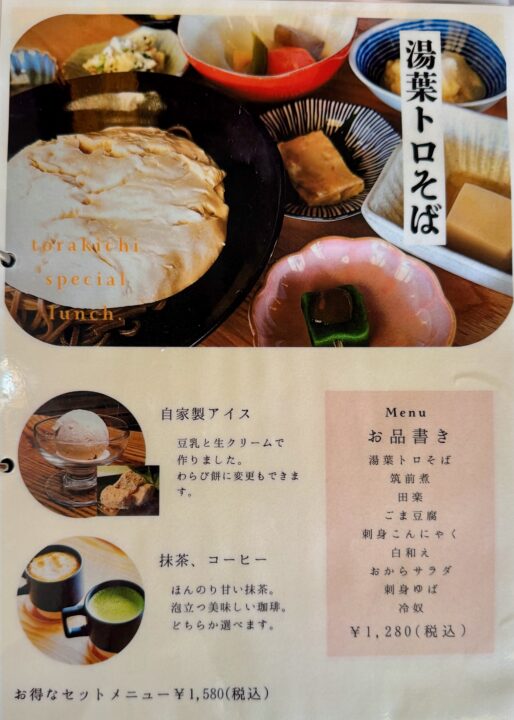 湯葉トロそば
torakichi
special
lunch.
自家製アイス
豆乳と生クリームで
作りました。
わらび餅に変更もできま
す。
抹茶、コーヒー
ほんのり甘い抹茶。
泡立つ美味しい珈琲。
どちらか選べます。
Menu
お品書き
湯葉トロそば
筑前煮
田楽
ごま豆腐
刺身こんにゃく
白和え
おからサラダ
刺身ゆば
冷奴
¥1,280(税込)
お得なセットメニュー¥1,580(税込)